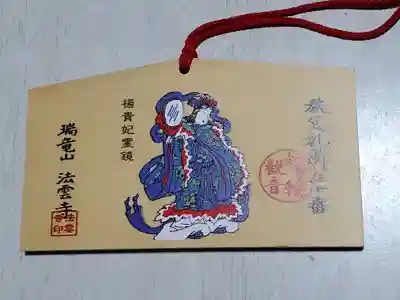 秩父札所三十番
楊貴妃霊鏡
瑞竜山 法雲寺